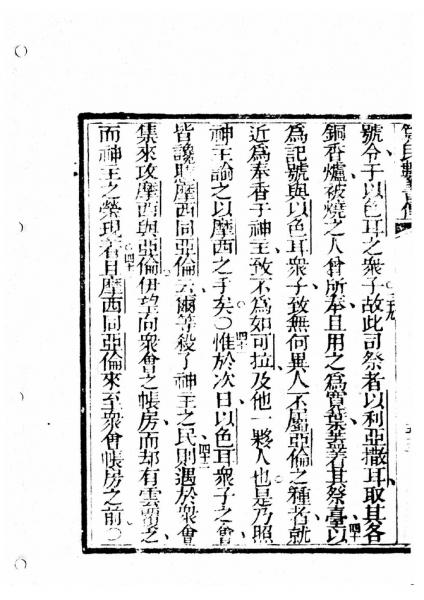 號令于以色耳之衆子故此司祭者以利亞撒耳取其各
銅香爐被燒之人曾所奉且用之爲寬葉蓋着其祭臺以四十
爲記號與以色耳衆子致無何異人不屬亞倫之種者就
近爲奉香于神主致不爲如可拉及他一夥人也是乃照
神主諭之以摩西之手矣○四一惟於次日以色耳衆子之會
皆讒摩西同亞倫云爾等殺了神主之民四二則遇於衆會
集來攻摩西與亞倫伊望向衆會之帳房而却有雲翳之
而神主之榮現着四三且摩西同亞倫來至衆會帳房之前○